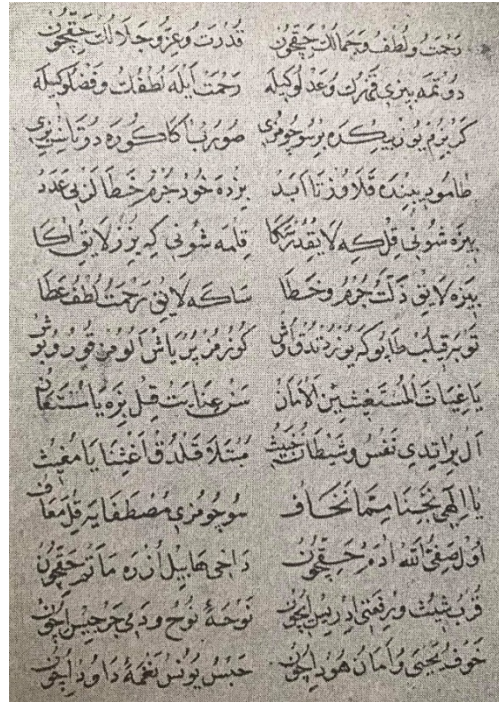 رحمت و لطف و جمالك حقيچون قدرت و عز و جلالك حقيچون
دوتمه بيزي قهرك و عدلوكيله رحمت ايله لطفك و فضلوكيله
صور بڭا كا كوره دوتاش بزي
طامو ببنده قلاوز تا ابد بزده خود جرم خطا لر بي عدد
بيزه شوني قل كه لايقدر سكا قلمه شوني كه بزز لايق اكا
بيزه لايق ذلت جرم و خطا ساكه لايق رحمت لطف عطا
توبه قيلب طابوكه يوز دندق كوزمز پر ياش الومز قورو بوش
يا غياث المستغيثين الامان سن عنايت قل بزه يا مستعان
ال براتدي نفس و شيطان خبيث مبتلا قلدق اغثنا يا مغيث
يا الهي نجنا مما نخاف سوچومزي مصطفايه قل معاف
اول صفي الله ادم حقيچون داخي هابيل ازره ماتم حقيچون
قرب شيث و رفعت ادريس ايچون نوحۀ نوح و دبي جرجيس ايچون
خوف يحيى و امان هود ايچون حبس يونس نغمۀ داود ايچون